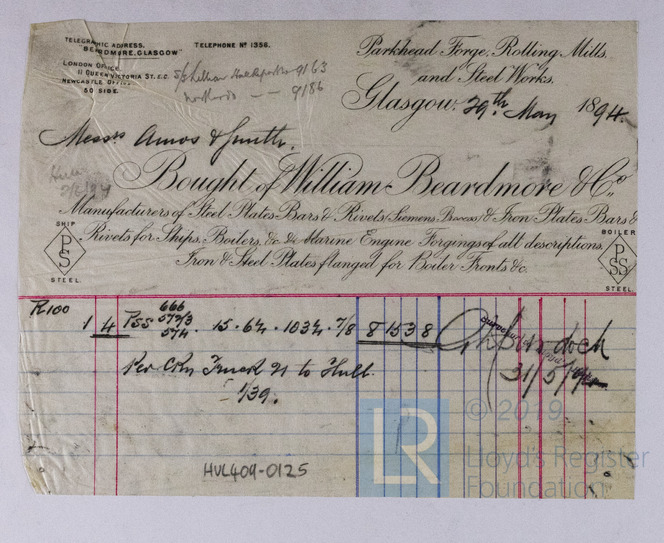 TELEGRAPHIC ADDRESS,
"BEARDMORE, GLASGOW"
TELEPHONE Nº 1356.
LONDON OFFICE
11 QUEEN VICTORIA ST. E.C.
NEWCASTLE OFFICE
50 SIDE.
9163
9186
Parkhead Forge, Rolling Mills,
and Steel Works,
Glasgow. 29th May 1894.
Messrs Amos & Smith.
Bought of William Beardmore & Co.,
Manufacturers of Steel Plates Bars & Rivets (Siemens Process) & Iron Plates Bars &
Rivets for Ships, Boilers, &c &c Marine Engine Forgings of all descriptions,
Iron & Steel Plates flanged for Boiler Fronts &c.
SHIP
PS
STEEL.
BOILER
PSS
STEEL.
R100
1 4 PSS 666
572/3
574 . 15 . 6¾ . 103¾ . 7/8 8 15 3 8
Per Truck to Hull.
1/39.
31/5/94
HUL409-0125
LR
© 2019
Lloyd's Register
Foundation